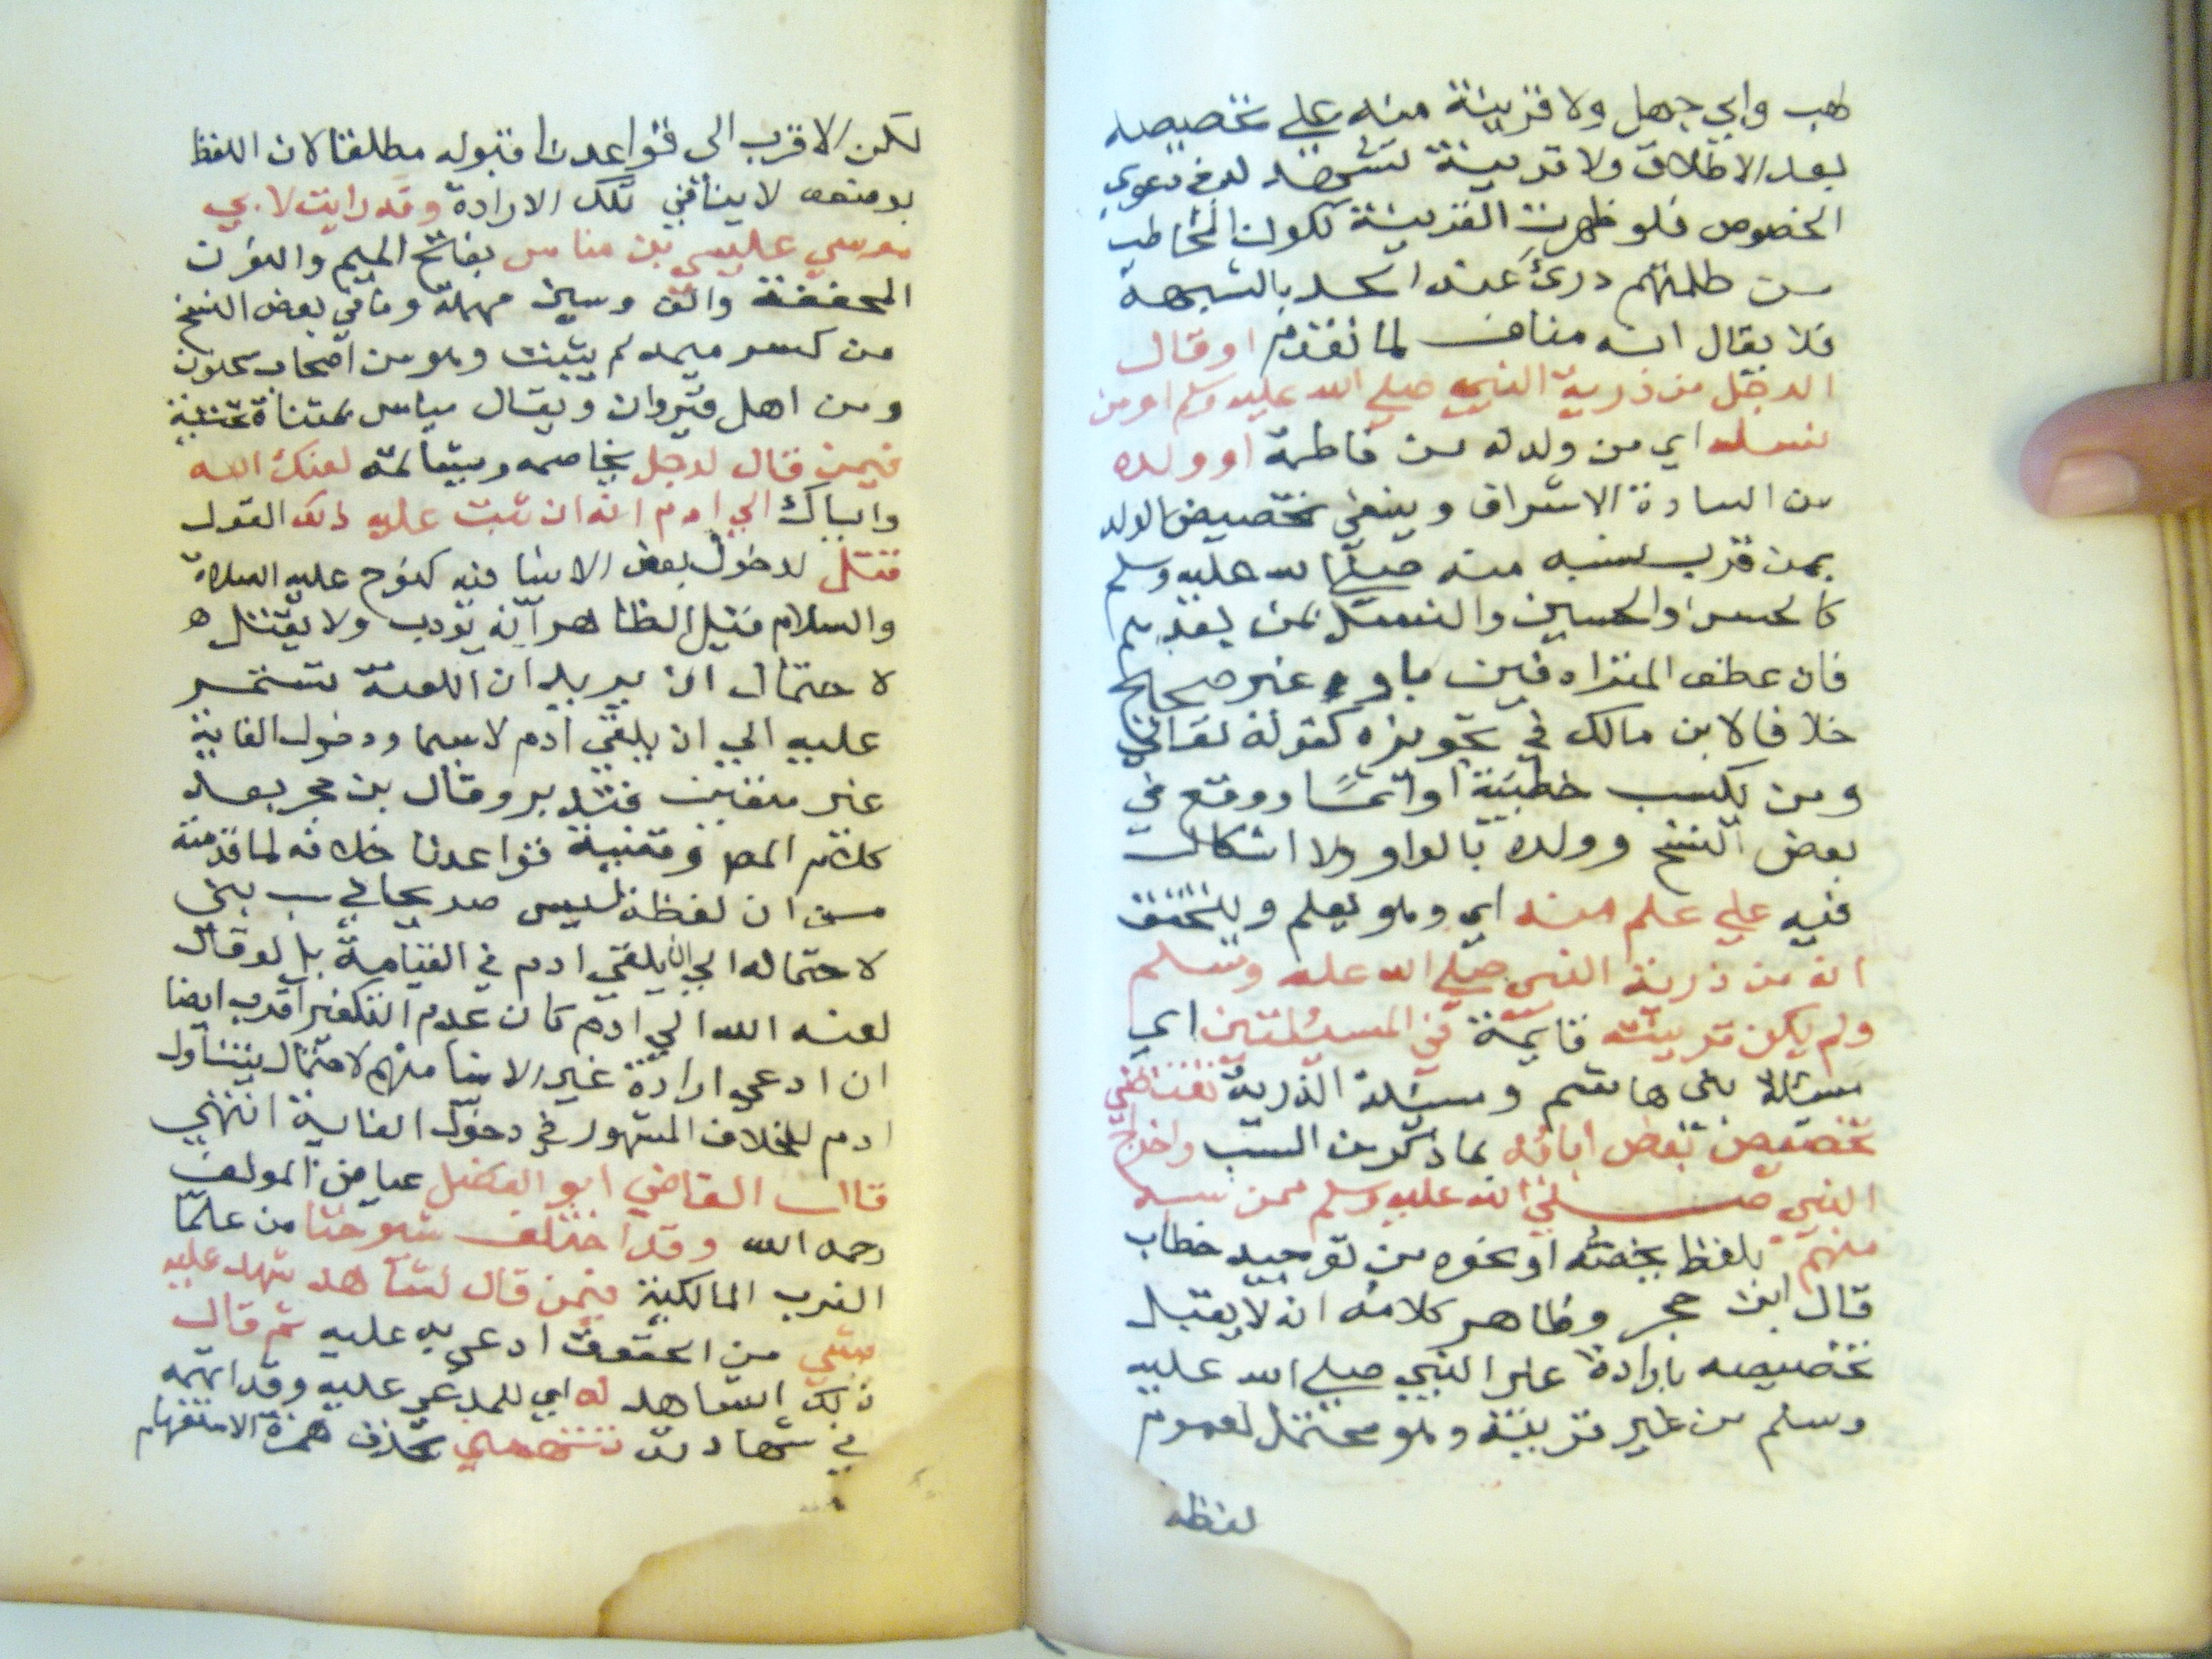 لهب وابي جهل ولا قرينة منه علي تخصيصه
بعد الاطلاق ولا قرينة تنتهض لدفع دعوي
الخصوص فلو ظهرت القرينة ككون المخاطب
من ظلمتهم درئ عنه الحد بالشبهة
فلا يقال انه مناف لما تقدم او قال
الرجل من ذرية النبي صلي الله عليه وسلم او من
نسله اي من ولد له من فاطمة او ولده
من السادة الاشراف وينبغي تخصيص الولد
بمن قرب نسبه منه صلي الله عليه وسلم
كالحسن والحسين والنسل بمن بعدهم
فان عطف المترادفين باو غير صحيح
خلافا لابن مالك في تجويزه كقوله تعالي
ومن يكسب خطيئة او اثما ووقع في
بعض النسخ وولده بالواو ولا اشكال
فيه علي علم منه اي وهو يعلم ويتحقق
انه من ذرية النبي صلي الله عليه وسلم
ولم يكن قرينة قايمة في المسئلتين اي
مسئلة بني هاشم ومسئلة الذرية تقتضي
تخصيص بعض ابائه بما ذكر من السب واخراج
النبي صلي الله عليه وسلم ممن سبه
منهم بلفظ يخصه او نحوه من توجيه خطاب
قال ابن حجر وظاهر كلامه انه لا يقبل
تخصيصه بارادة غير النبي صلي الله عليه
وسلم من غير قرينة وهو محتمل لعموم
لفظه
لكن الاقرب الى قواعدنا قبوله مطلقا لان اللفظ
بوضعه لا ينافي تلك الارادة وقد رايت لابي
موسي عيسي بن مناس بفاتح الميم والنون
المخففة والف وسين مهملة وما في بعض النسخ
من كسر ميمه لم يثبت وهو من اصحاب سحنون
ومن اهل قيروان ويقال مياس بمثناة تحتية
فيمن قال لرجل يخاصمه ويشاتمه لعنك الله
واباك الي ادم انه ان ثبت عليه ذلك القول
قتل لدخول بعض الانبيا فيه كنوح عليه الصلاة
والسلام قيل الظاهر انه يودب ولا يقتل
لاحتمال ان يريد ان اللعنة تستمر
عليه الي ان يلقي ادم لاسيما ودخول الغاية
غير متعين فتدبر وقال بن حجر بعد
كلام المصـ وقضية قواعدنا خلافه لما قدمته
من ان لفظه ليس صريحا في سب نبي
لاحتماله الي ان يلقي ادم في القيامة بل لو قال
لعنه الله الي ادم كان عدم التكفير اقرب ايضا
ان ادعي ارادة غير الانبيا منهم لاحتمال يتناول
ادم للخلاف المشهور في دخول الغاية انتهي
قال القاضي ابو الفضل عياض المولف
رحمه الله وقد اختلف شيوخنا من علما
الغرب المالكية فيمن قال لشاهد شهد عليه
بشي من الحقوق ادعي به عليه ثم قال
ذلك الشاهد له اي للمدعي عليه وقد اتهمه
في شهادته تتهمني بحذف همزة الاستفهام